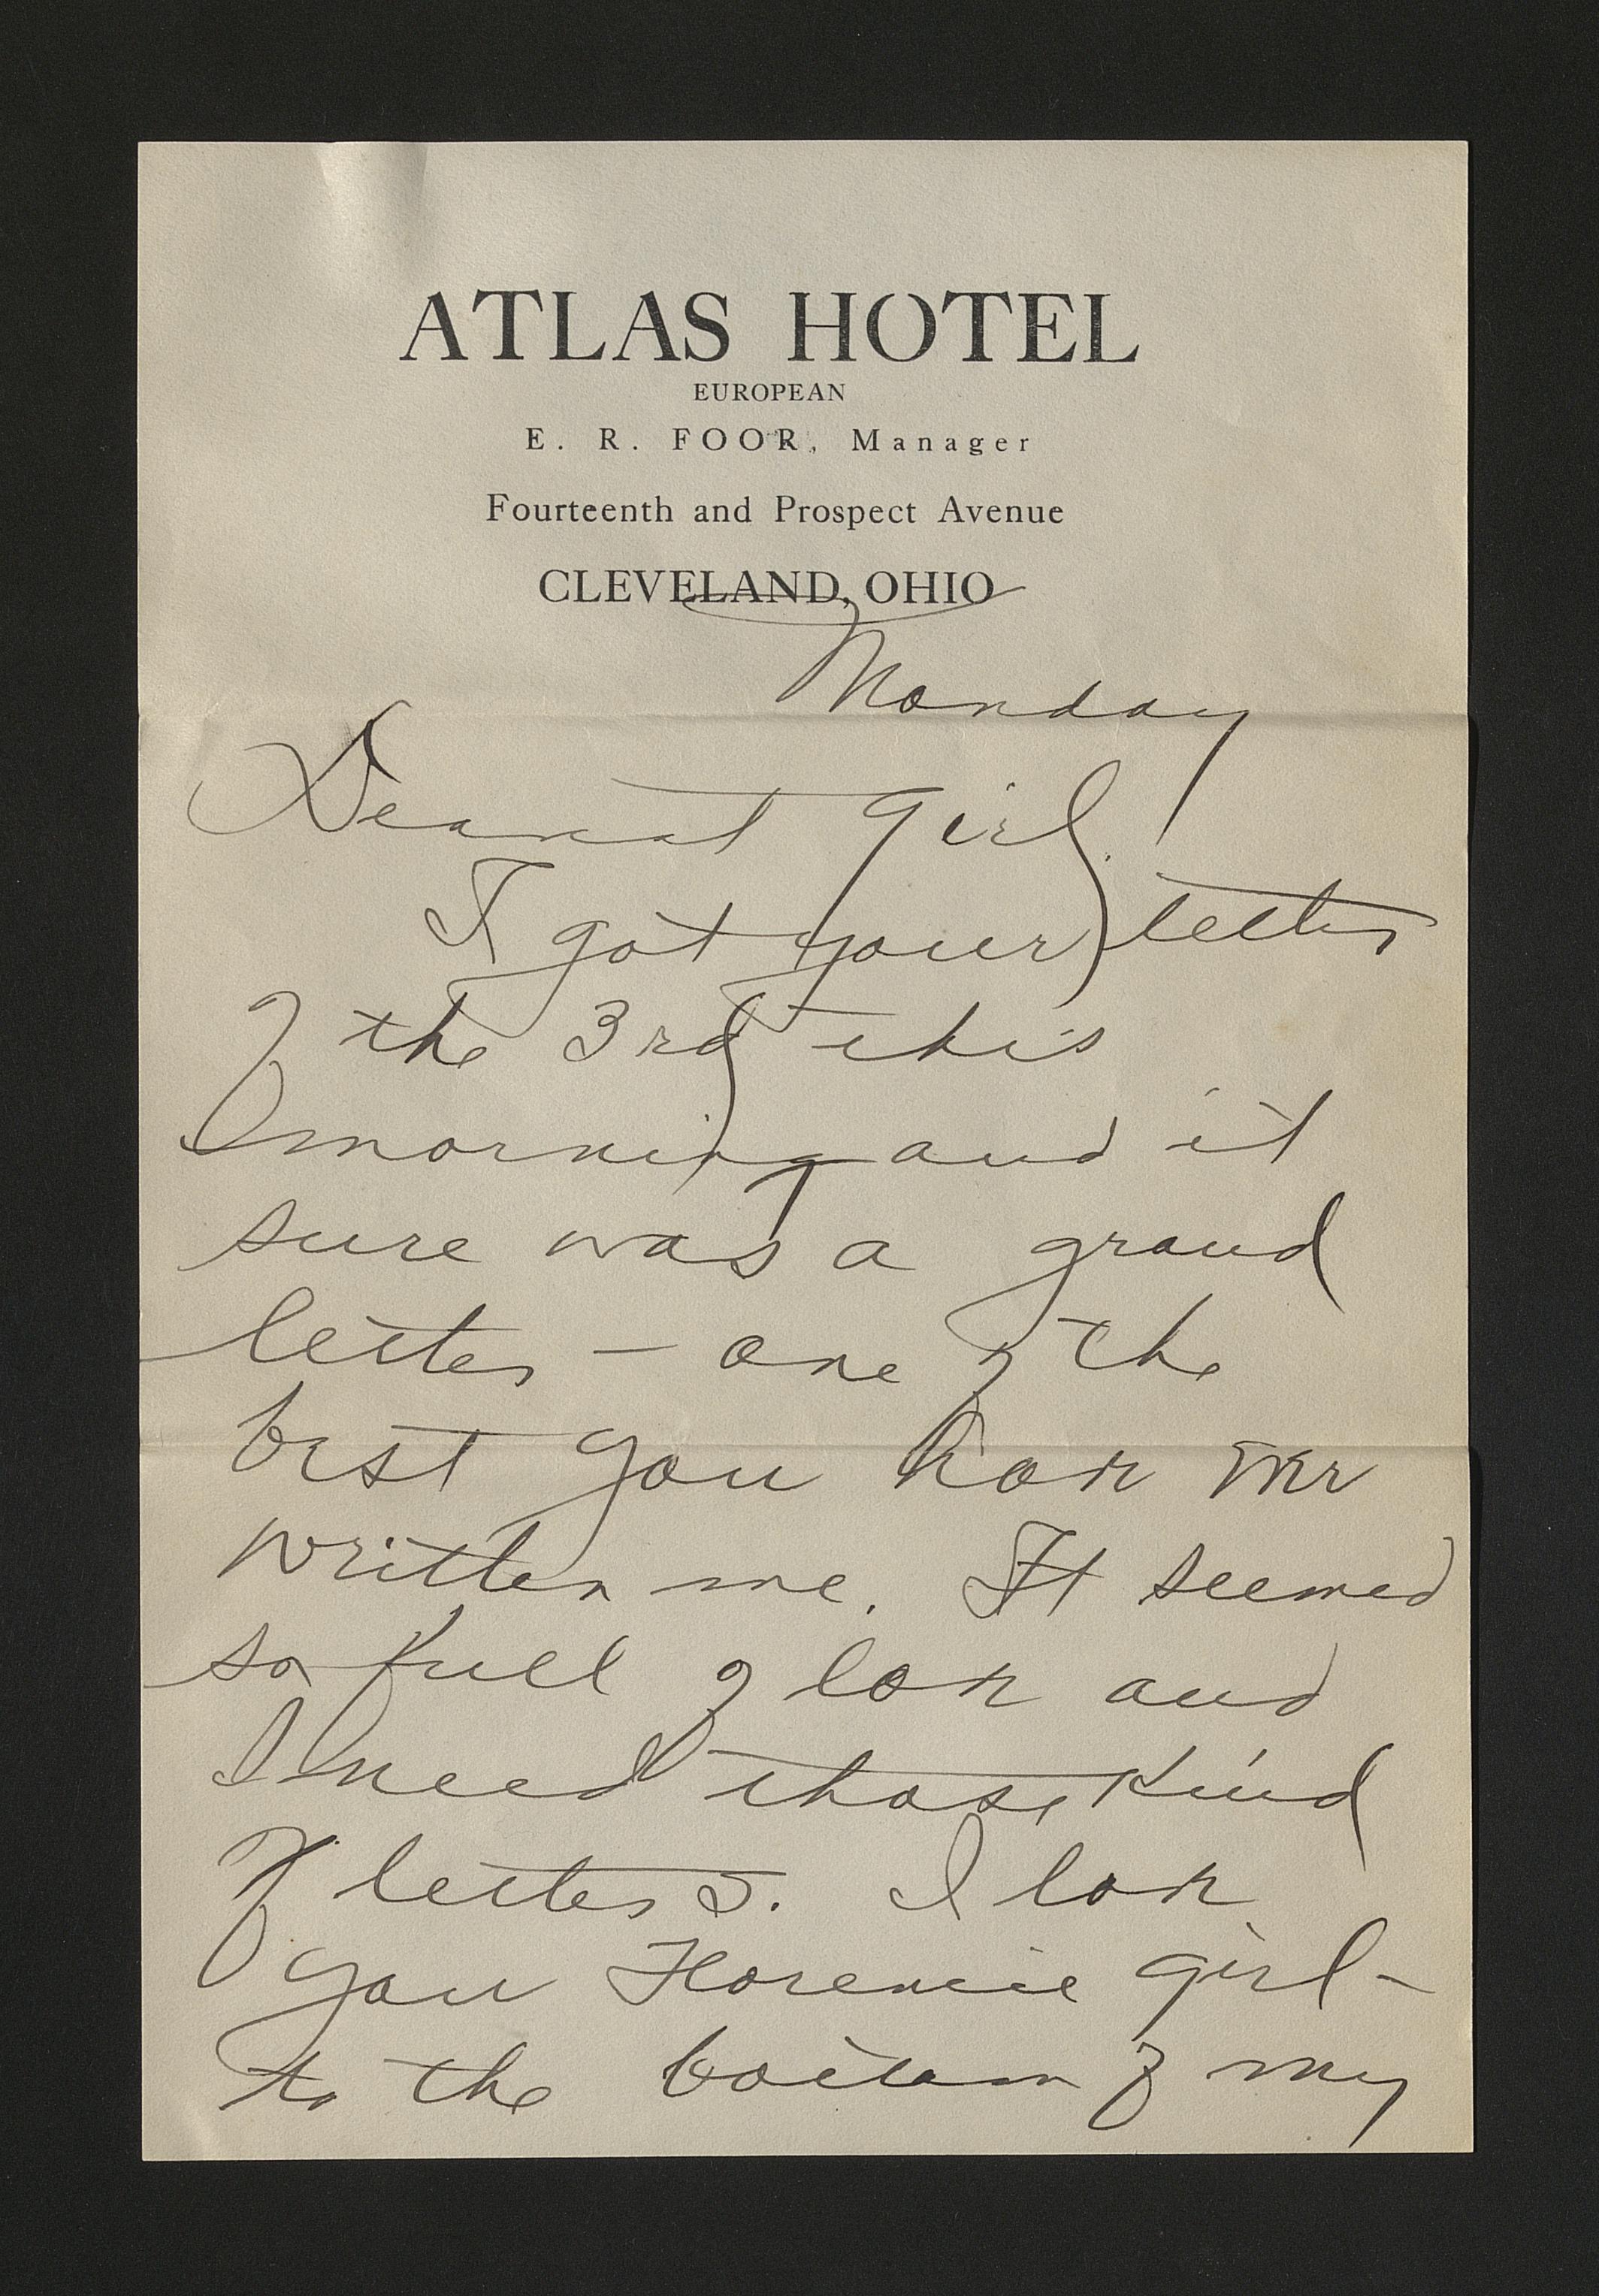 ATLAS HOTEL
EUROPEAN
E. R. FOOR, Manager
Fourteenth and Prospect Avenue
CLEVELAND, OHIO
Monday
Dearest Girl
I got your letter
of the 3rd this
morning and it
sure was a grand
letter – one of the
best you have ever
written me. It seemed
so full of love and
I need those kind
of letters. I love
you Florence girl –
to the bottom of my